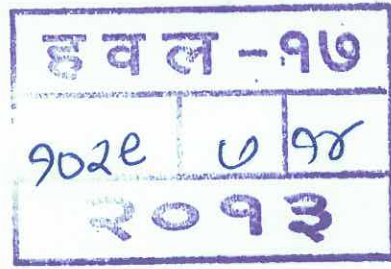 हवल-१७
१०२९ ७ १४
२०१३